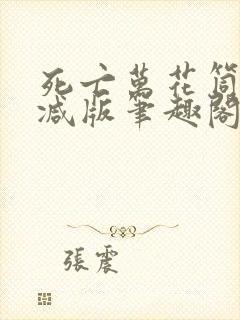 死亡萬花筒
減版筆趣閣
張震